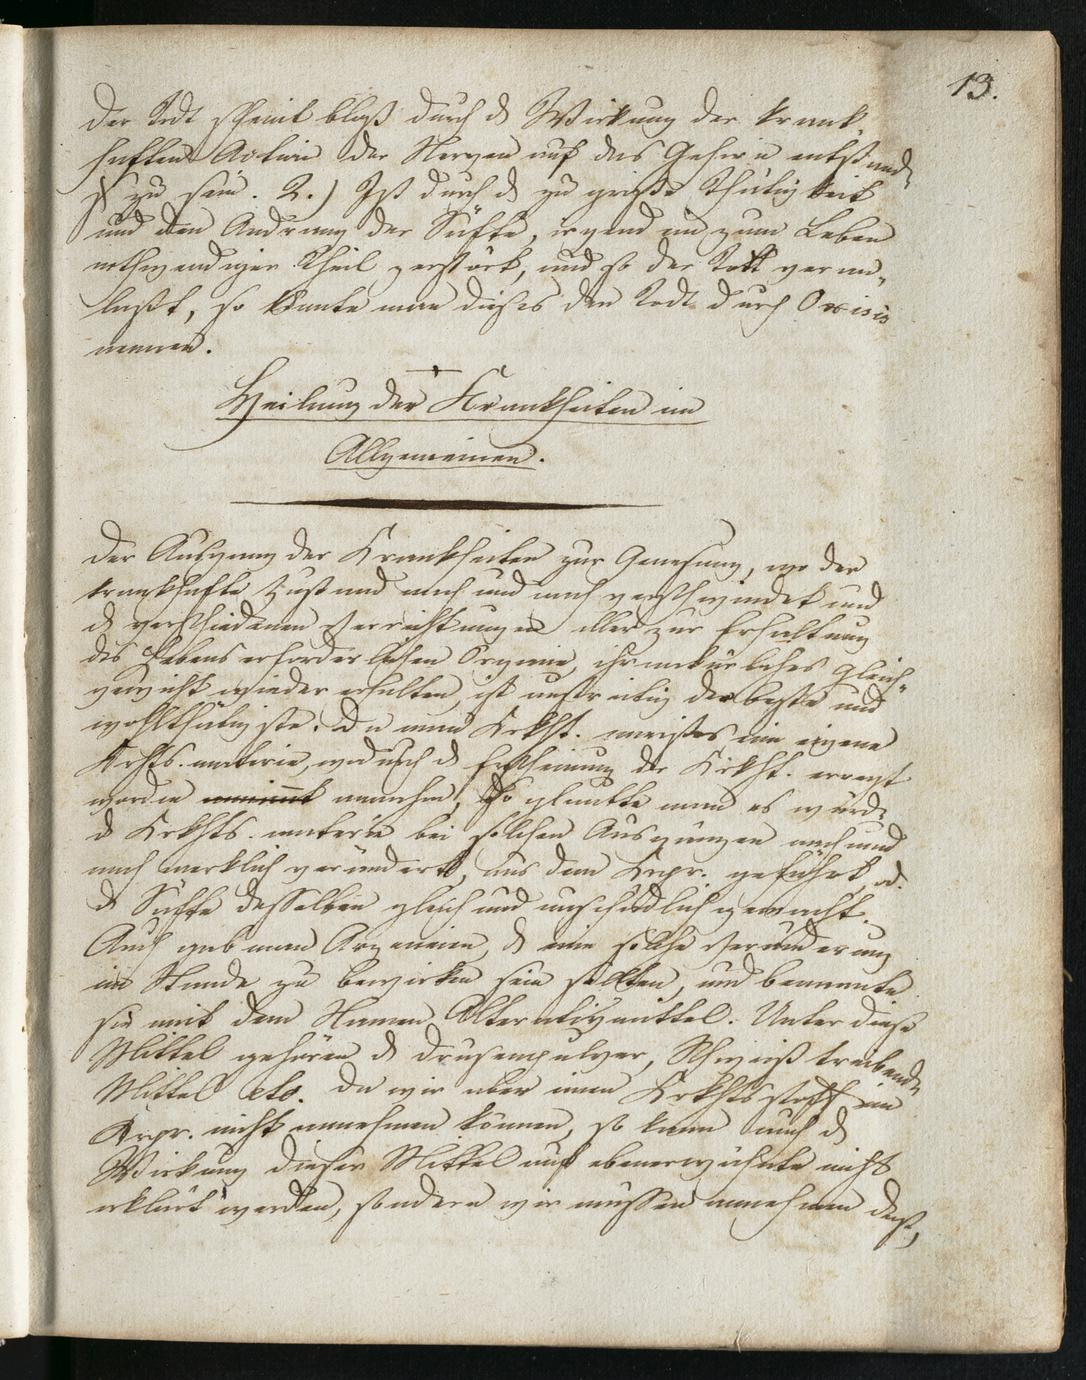 13.
Der Todt scheint bloß durch d Wirkung der krank
haften Action der Nerven auf das Gehirn entstand¬
zu sein. 2.) Ist durch d zu große Thätigkeit
und den Andrang der Säfte, irgend ein zum Leben
nothwendiger Theil zerstört, und so der Tott veran¬
laßt, so könnte man dieses den Todt durch Crisis
nennen.
Heilung der Krankheiten im
Allgemeinen.
Der Ausgang der Krankheiten zur Genesung, wo der
krankhafte Zustand nach und nach verschwindet und
d verschiedenen Verrichtungen aller zur Erhaltung
des Lebens erforderlichen Organe, ihr natürliches Gleich¬
gewicht wieder erhalten, ist unstreitig der beste und
wohlthätigste. Da man Krkht. meistes eine eigene
Krhts. materie, wodurch d Erscheinung der Krkht. erregt
worden annahm, so glaubte man es würde
d Krkhts. materie bei solchen Ausgängen nach und
nach merklich verändert, aus dem Krpr. geführt, od.
d Säfte desselben gleich und unschädlich gemacht.
Auch gab man Arzeneien, d eine solche Veränderung
im Stande zu bewirken sein sollten, und benannte
sie mit dem Namen Alterativmittel. Unter diese
Mittel gehören d Drusenpulver, Schweiß treibende
Mittel etc. Da wir aber einen Krkhtsstoff im
Krpr. nicht annehmen können, so kann auch d
Wirkung dieser Mittel auf ebenerwähnte nicht
erklärt werden, sondern wir müssen annehmen daß,